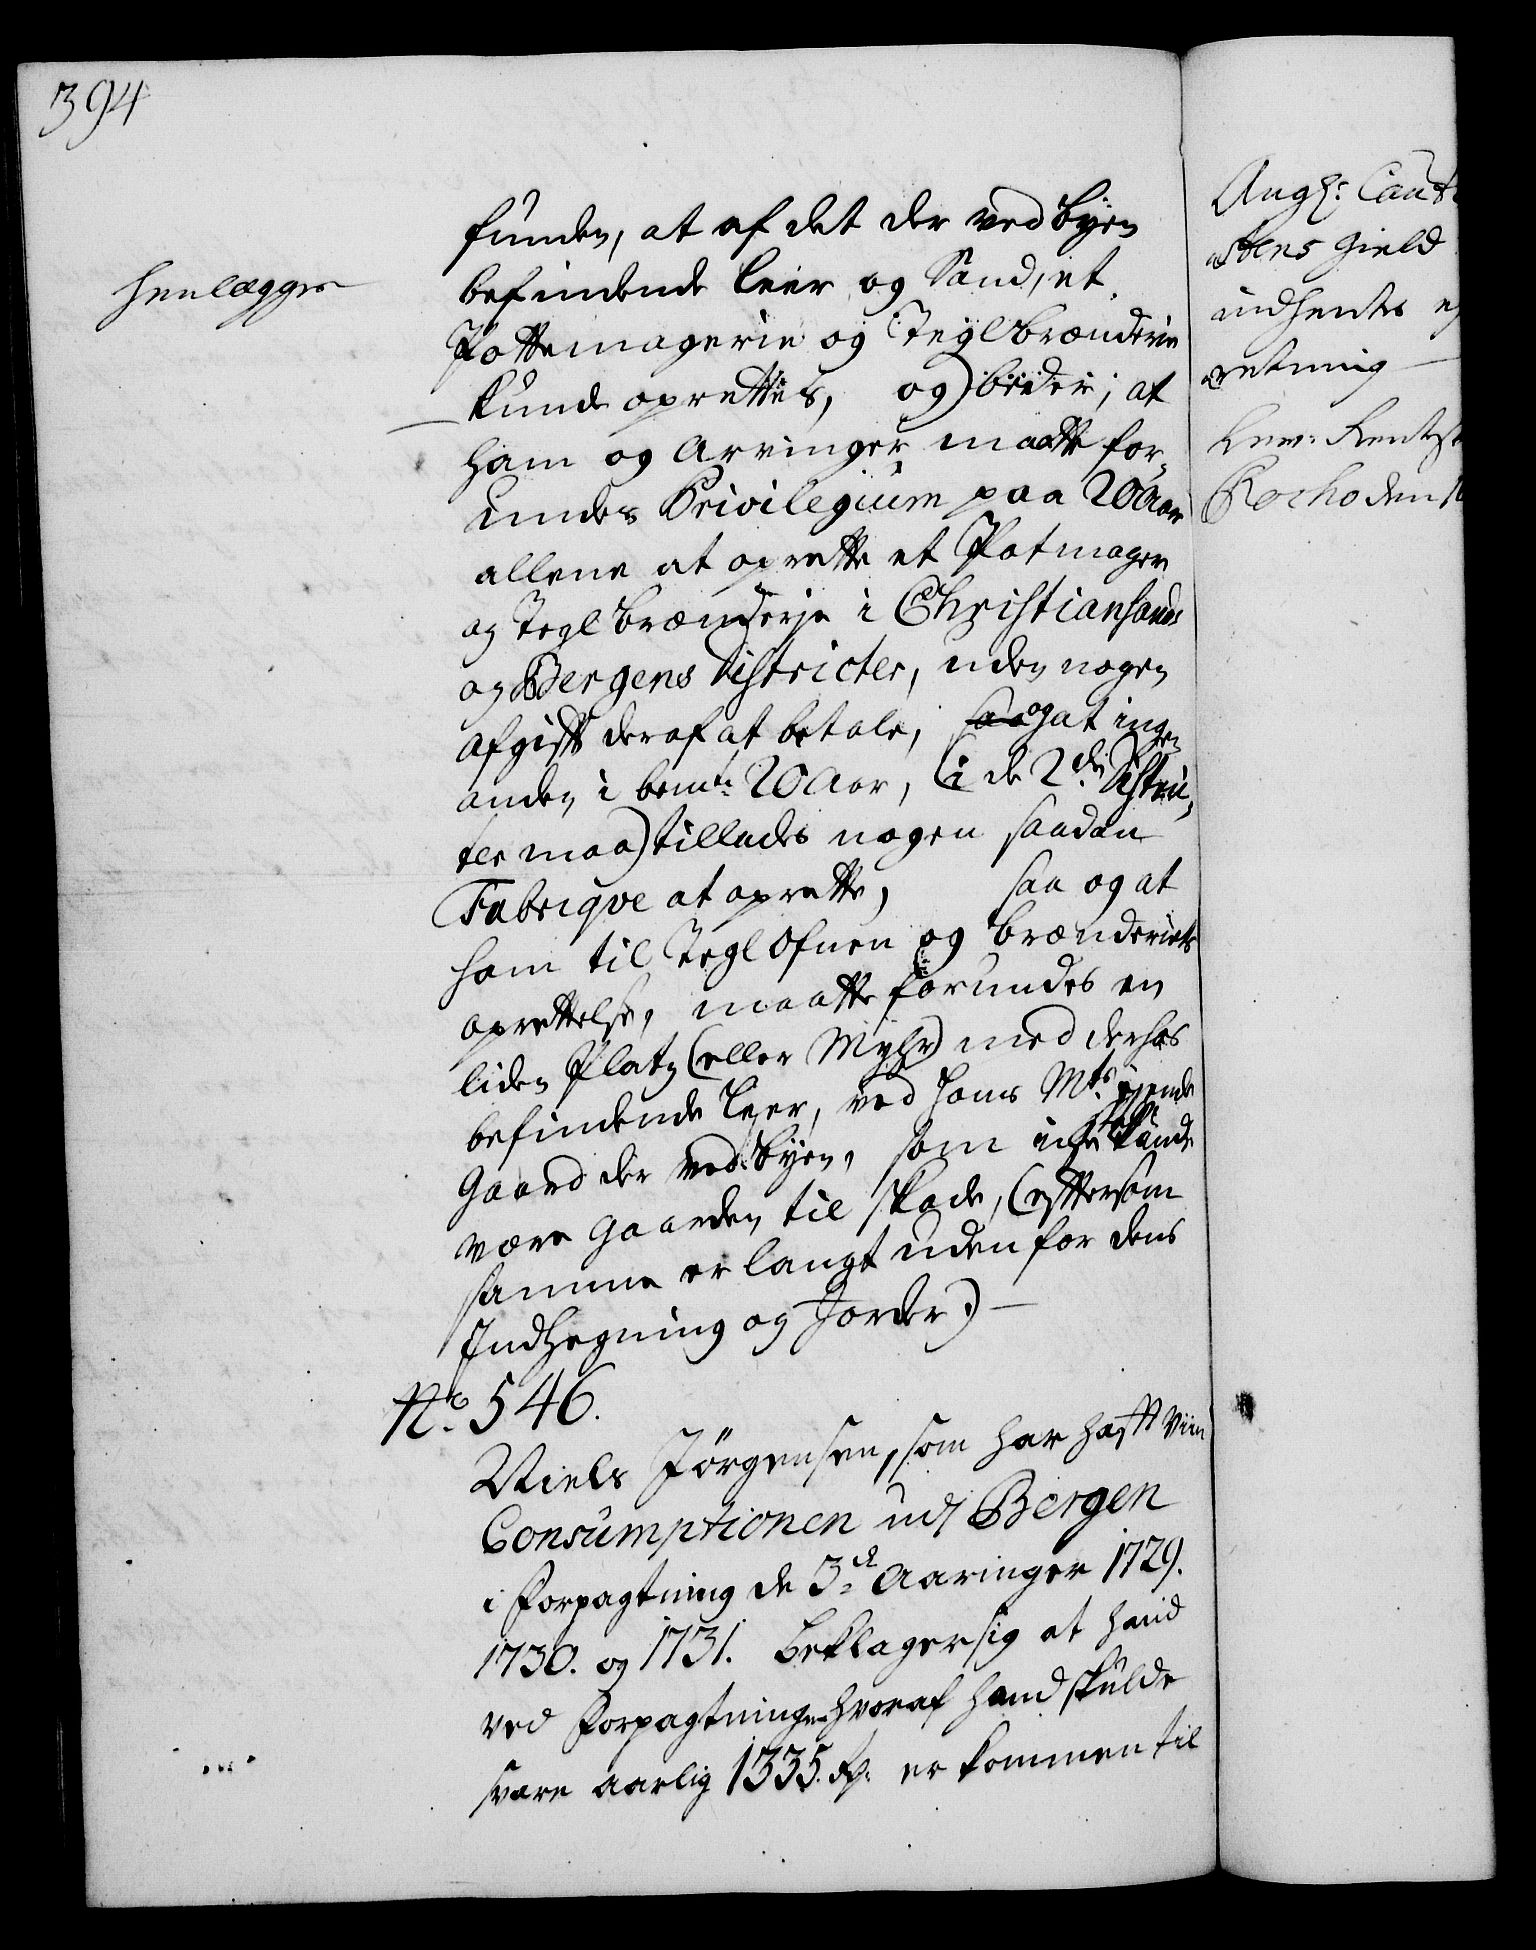 394
henlægges
funden, at af det der ved Byen
befindende leer og Sand, et
Pottemagerie og Teglbrænderie
kunde oprettes, og beder, at
ham og Arvinger maatte for-
undes Privilegium paa 20 Aar
allene at oprette et Potmager
og Teglbrænderje i Christiansands
og Bergens Districter, uden nogen
afgift deraf at betale, og at ingen
anden i bemte 20 Aar, (i de 2de Distri-
cter maa) tillades nogen saadan
Fabriqve at oprette, saa og at
ham til Teglofnen og brænderiets
oprettelse, maatte forundes en
liden Platz (eller Myhr) med derhos
befindende Leer, ved Hans Mts ejende
Gaard der ved Byen, som icke kunde
være Gaarden til skade, (eftersom
samme er langt uden for dens
Indhegning og Jorder.) —
No. 546.
Niels Jørgensen, som har hafft Viin
Consumptionen udj Bergen
i Forpagtning de 3de Aaringer 1729.
1730. og 1731. beklager sig at hand
ved Forpagtningen hvoraf hand skulde
svare aarlig 1335. Rd. er kommen til
Angl: Caut
stens Gield
indhentes
retning
Rocho den